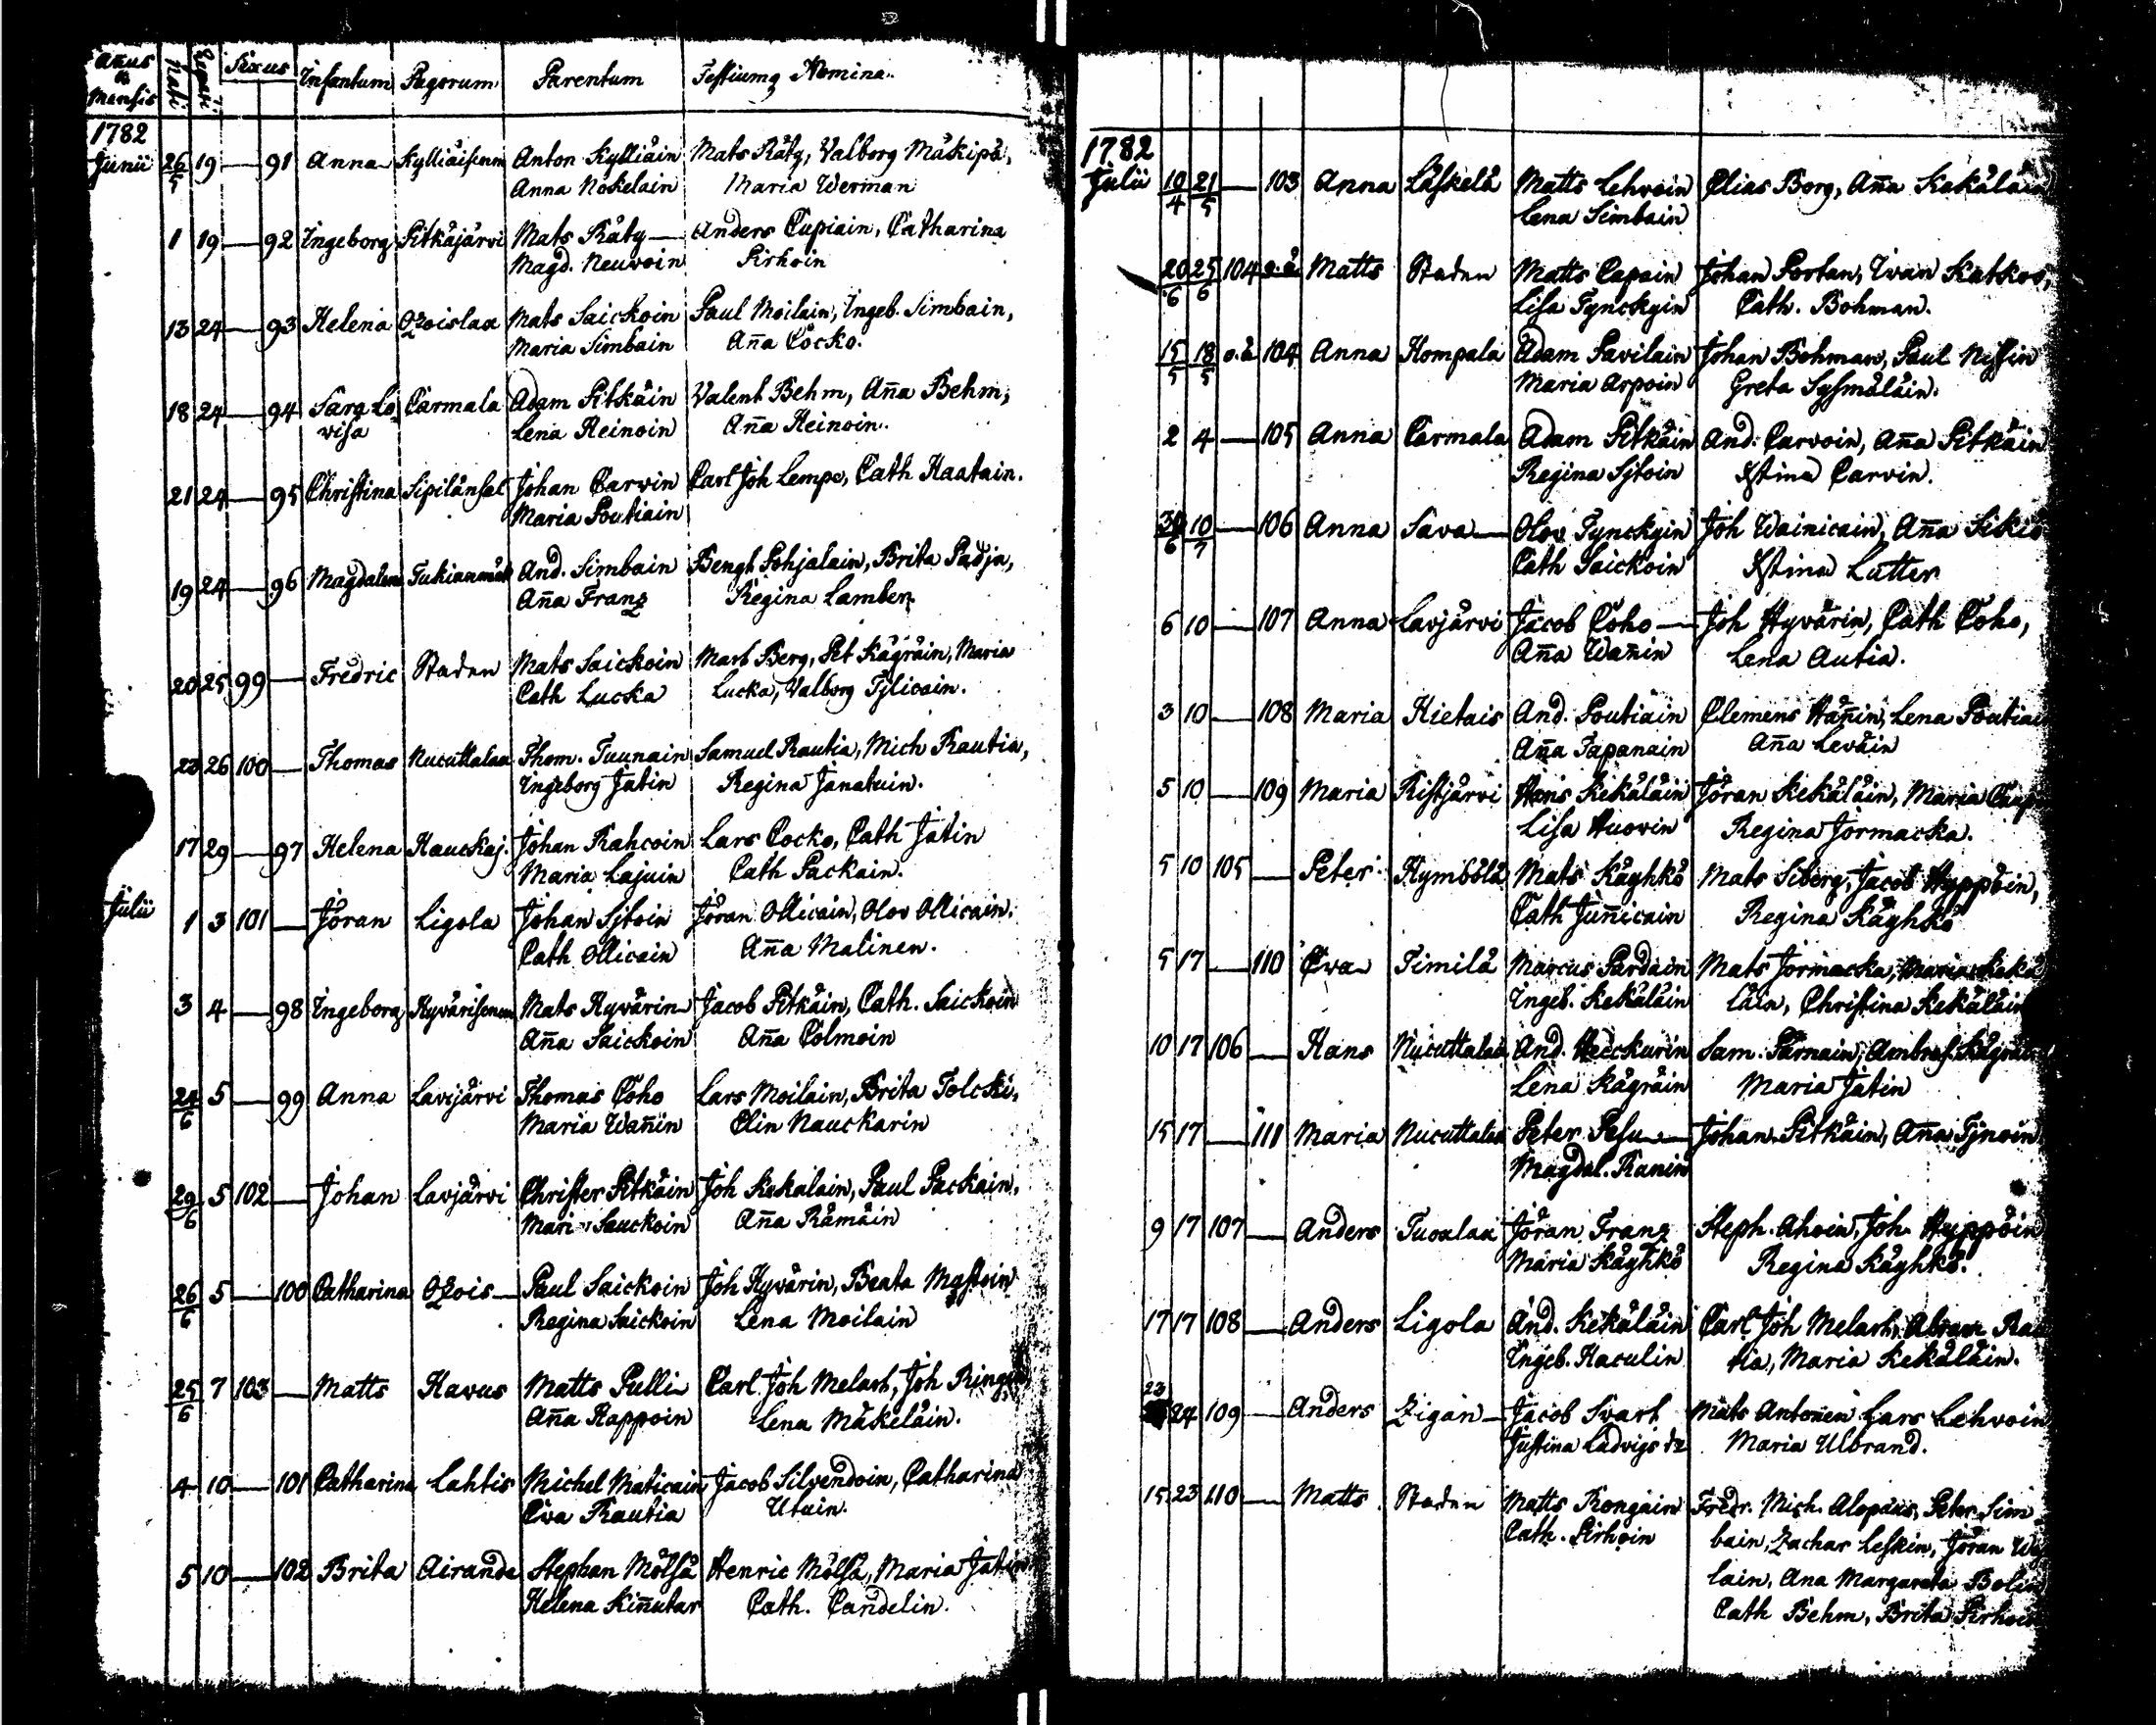 Añus & Mensis Nati Renati Sexus Infantum Pagorum Parentum Testiumq Nomina.
1782
Junii 26/5 19 — 91 Anna Kylliäisenm Anton Kylliäin Mats Räty, Valborg Mäkipä,
Anna Nokelain Maria Werman
1 19 — 92 Ingeborg Pitkäjärvi Mats Räty — Anders Cupiain, Catharina
Magd. Neuvoin Pirhoin
13 24 — 93 Helena Ozoislax Mats Saickoin Paul Moilain, Ingeb. Simbain,
Maria Simbain Aña Cocko.
18 24 — 94 Sara Lo Carmala Adam Pitkäin Valent Behm, Aña Behm,
visa Lena Heinoin Aña Heinoin.
21 24 — 95 Christina Sipilänsal Johan Carvin Carl Joh Lempo, Cath Haatain.
Maria Poutiain
19 24 — 96 Magdalena Tukianmäk And. Simbain Bengt Pohjalain, Brita Padja,
Aña Franz Regina Lamber.
20 25 99 — Fredric Staden Mats Saickoin Mart Berg, Pet Kägräin, Maria
Cath Lucka Lucka, Valborg Tylicain.
23 26 100 — Thomas Nucuttalax Thom. Tuunain Samuel Rautia, Mich Rautia,
Ingeborg Jatin Regina Janatuin.
17 29 — 97 Helena Hauckaj. Johan Rahcoin Lars Cocko, Cath Jatin
Maria Lajuin Cath Packain.
Julii 1 3 101 — Jöran Ligola Johan Sjtoin Jöran Ollicain, Olov Ollicain.
Cath Ollicain Aña Malinen.
3 4 — 98 Ingeborg Hyvärisenm Mats Hyvärin Jacob Pitkäin, Cath. Saickoin
Aña Saickoin Aña Colmoin
24/6 5 — 99 Anna Lavijärvi Thomas Coho Lars Moilain, Brita Tolcki,
Maria Wañin Elin Nauckarin
29/6 5 102 — Johan Lavjärvi Christer Pitkäin Joh Kekalain, Paul Packain,
Mari Sauckoin Aña Rämäin
26/6 5 — 100 Catharina Ozois — Paul Saickoin Joh Hyvärin, Beata Mystoin
Regina Saickoin Lena Moilain
25/6 7 103 — Matts Havus Matts Pulli Carl Joh Melart, Joh
Aña Rappoin Lena Mäkeläin.
4 10 — 101 Catharina Lahtis Michel Maticain Jacob Silvendoin, Catharina
Eva Rautia Utuin.
5 10 — 102 Brita Airanda Stephan Mölsä Henric Mölsä, Maria Jatin
Helena Kiñutar Cath. Candelin.
1782
Julii 10/4 21/5 — 103 Anna Läskelä Matts Lehvoin Elias Borg, Aña Kekäläin
Lena Simbain
20/6 25/6 104 o.ä. Matts Staden Matts Capain Johan Portan, Ivan Katkov,
Lisa Tynckyin Cath. Bohman.
15/5 18/5 o.ä 104 Anna Kompala Adam Savilain Johan Bohman, Paul Nissin
Maria Arpoin Greta Sysmäläin.
2 4 — 105 Anna Carmala Adam Pitkäin And. Carvoin, Aña Pitkäin
Regina Sjtoin Xstina Carvin.
6 10/7 — 106 Anna Sava — Olov Tynckyin Joh Wainicain, Aña
Cath Saickoin Xstina Lutter
6 10 — 107 Anna Lavjärvi Jacob Coho — Joh Hyvärin, Cath Coho,
Aña Wañin Lena Autia.
3 10 — 108 Maria Hietais And. Poutiain Clemens Häñin, Lena Poutiai
Aña Tapanain Aña Leväin
5 10 — 109 Maria Ristjärvi Hans Kekäläin Jöran Kekäläin, Maria
Lisa Huovin Regina Jormacka.
5 10 105 — Peter Kymbölä Mats Käyhkö Mats Siberg, Jacob Hyppöin,
Cath Juñicain Regina Käyhkö
5 17 — 110 Eva Timilä Marcus Pardain Mats Jormacka, Maria Kekä
Ingeb. Kekäläin läin, Christina Kekäläin
10 17 106 — Hans Nucuttalax And. Heeckurin Sam. Pärnäin, Ambros. Kägräin
Lena Kägräin Maria Jatin
15 17 — 111 Maria Nucuttalax Peter Pesu — Johan Pitkäin, Aña Tjnoin.
Magdal. Ranin
9 17 107 — Anders Tuoslax Jöran Franz Steph. Ahoin, Joh Hyppöin
Maria Käyhkö Regina Käyhkö.
17 17 108 — Anders Ligola And. Kekäläin Carl Joh Melart, Abram Rau
Ingeb. Haculin tia, Maria Kekäläin.
23 24 109 — Anders Zigan — Jacob Svart Mats Antonen Lars Lehvoin
Justina Ladvigs dr Maria Ulbrand.
15 23 110 — Matts Staden Matts Rongain Fredr. Mich. Alopæus, Peter Sim
Cath. Pirhoin bain, Zachar Leskin, Jöran
lain, Ana Margareta Bolin
Cath Behm, Brita Pirhoin